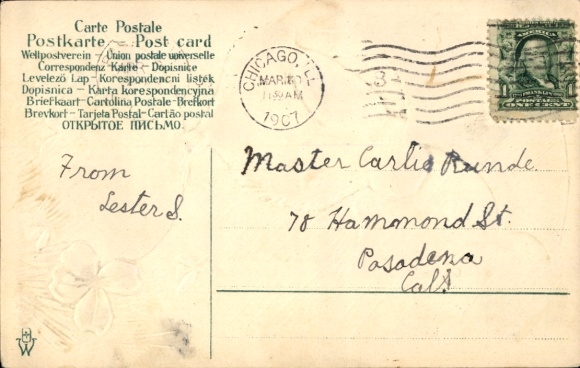 Carte Postale
Postkarte – Post card
Weltpostverein – Union postale universelle
Correspondenz Karte – Dopisnice
Levelező Lap – Korespondencni listek
Dopisnica – Karta korespondencyjna
Briefkaart – Cartolina Postale – Brefkort
Brevkort – Tarjeta Postal – Cartão postal
ОТКРЫТОЕ ПИСЬМО.
CHICAGO, ILL
MAR
11 AM
1907
3
FRANKLIN
1 POSTAGE 1
ONE CENT
From
Lester S.
Master Carlis Runde.
70 Hammond St.
Pasadena
Cal.
W